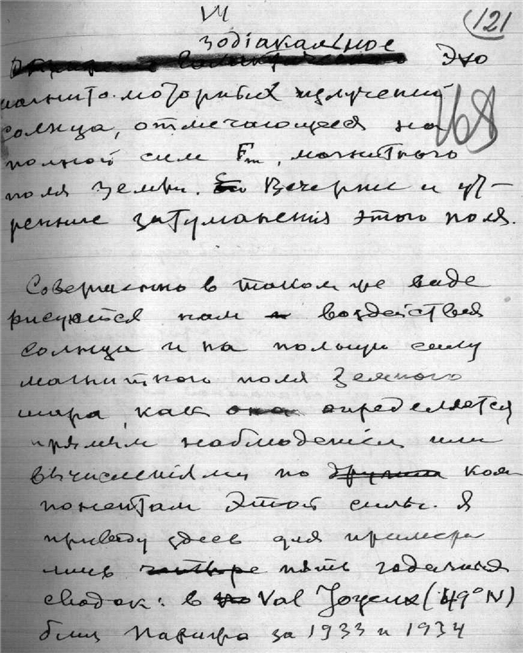 VI
121
зодіакальное Эхо
магнито-моторных излучений
168
солнца, отмечающееся на
полной силе Fm, магнитного
поля Земли. Вечерние и ут-
ренние затуманения этого поля.
Совершенно в таком же виде
рисуются нам воздействия
солнца и на полную силу
магнитного поля Земного
шара, как она определяется
прямым наблюденіем или
вычисленіями по ком
понентам этой силы. Я
приведу здесь для примера
лишь четыре пять годичных
сводок: в Val Joyeux (49°N)
близ Парижа за 1933 и 1934